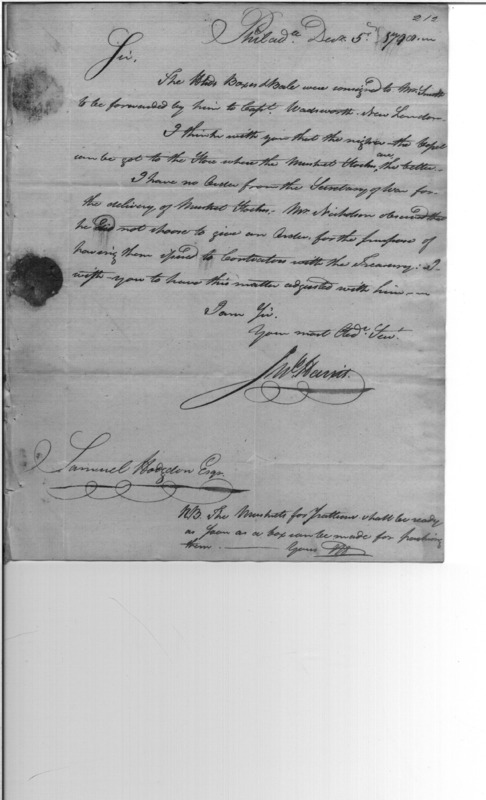 212
Philada. Decr. 5th 1798
Sir,
The Hhds Boxes & Bale were consigned to Mr
to be forwarded by him to Capt. Wadsworth New London
I think with you that the nigher the
can be got to the Store where the Musket Stocks are, the better
I have no Order from the Secretary of War for
the delivery of Musket Stocks. Mr Nicholson observed that
he did not choose to give an Order for the purpose of
having them issued to Contractors with the Treasury. I
wish you to have this matter adjusted with him
I am Sir.
Your most Obdt. Servt.
Jno. Harris.
Samuel Hodgdon Esqr.
NB The Muskets for shall be ready
as soon as a box can be made for packing
them. Yours JH